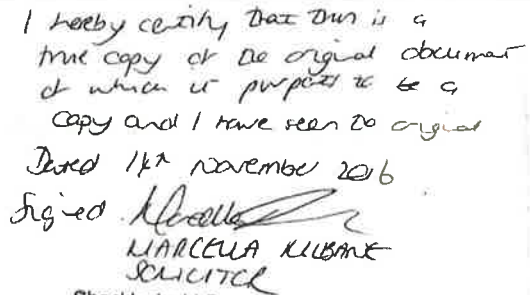 I hereby certify that this is a
true copy of the original document
of which it purports to be a
copy and I have seen the original
Dated 14th November 2016
Signed
MARCELLA KILBANE
SOLICITOR